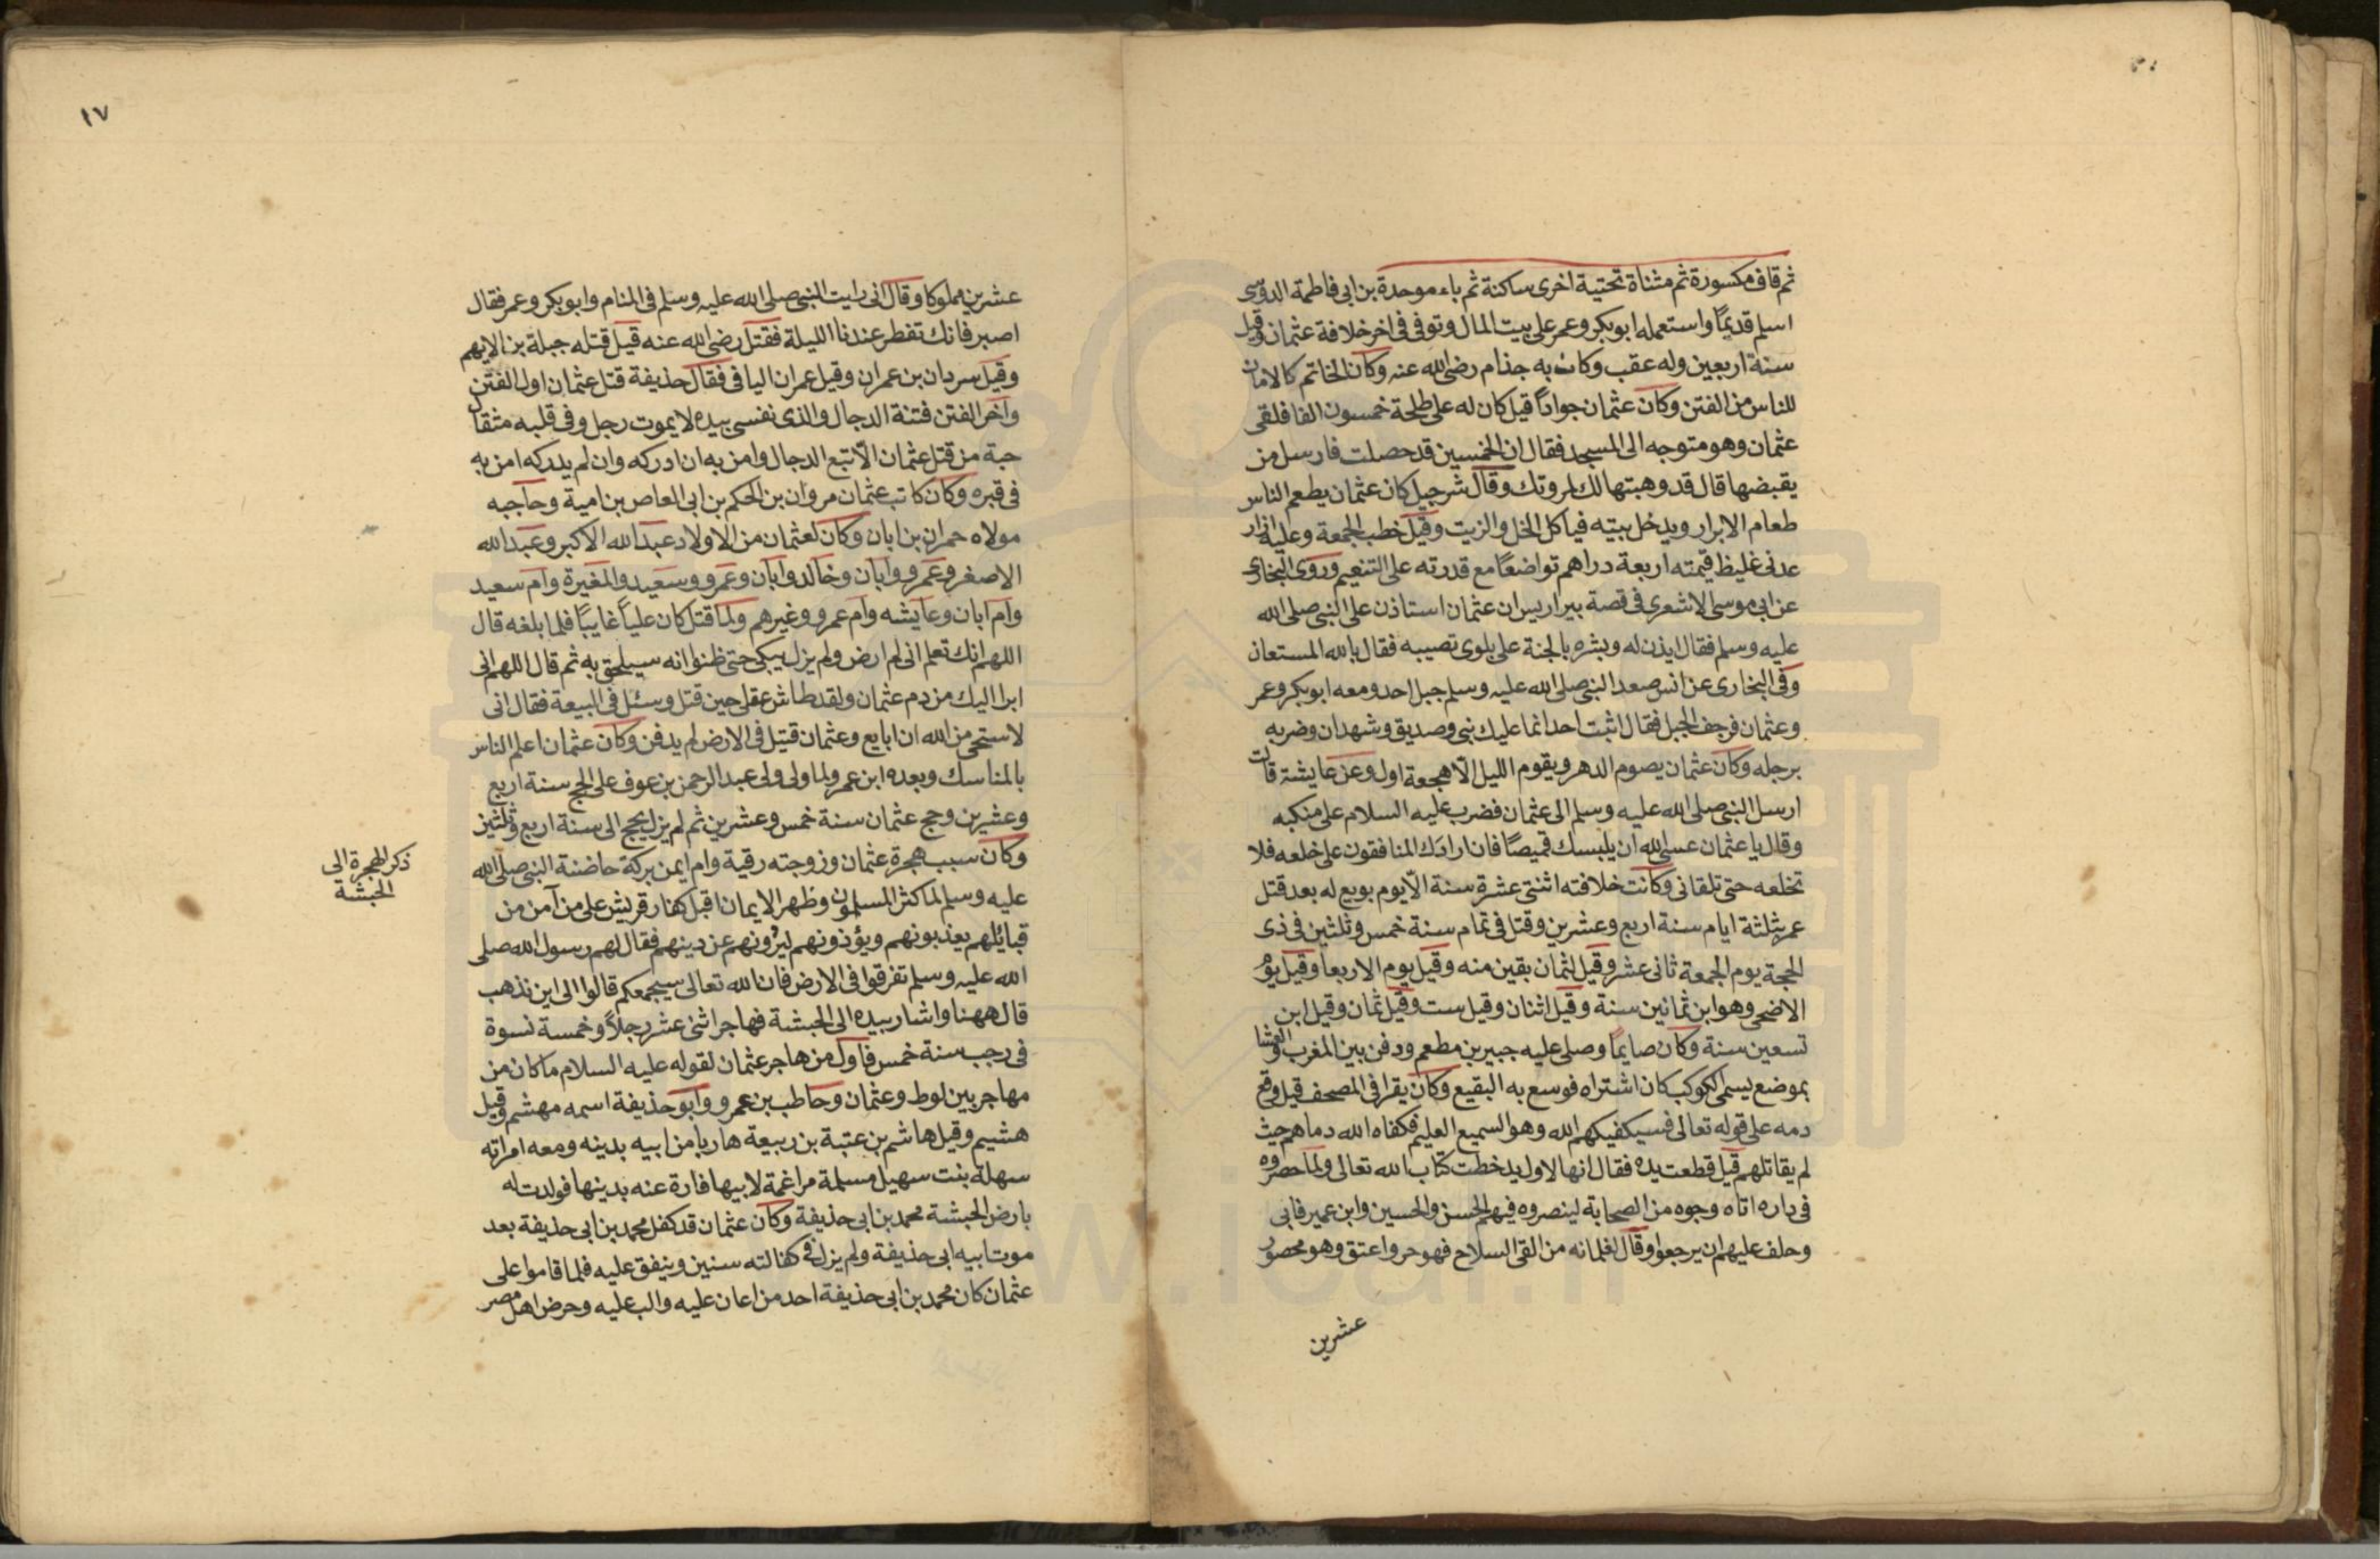 ثم قاف مكسورة ثم مثناة تحتية اخرى ساكنة ثم باء موحدة بن ابى فاطمة الدوسى
اسلم قديماً واستعمله ابو بكر وعمر على بيت المال وتوفى فى اخر خلافة عثمان وقيل
سنة اربعين وله عقب وكان به جذام رضى الله عنه وكان الخاتم كالامان
للناس من الفتن وكان عثمان جواداً قيل كان له على طلحة خمسون الفا فلقى
عثمان وهو متوجه الى المسجد فقال ان الخمسين قد حصلت فارسل من
يقبضها قال قد وهبتها لك لمروتك وقال شرحبيل كان عثمان يطعم الناس
طعام الابرار ويدخل بيته فياكل الخل والزيت وقيل خطب الجمعة وعليه ازار
عدنى غليظ قيمته اربعة دراهم تواضعاً مع قدرته على التنعيم وروى البخارى
عن ابى موسى الاشعرى فى قصة بير اريس ان عثمان استاذن على النبى صلى الله
عليه وسلم فقال ايذن له وبشره بالجنة على بلوى تصيبه فقال بالله المستعان
وفى البخارى عن انس صعد النبى صلى الله عليه وسلم جبل احد ومعه ابو بكر وعمر
وعثمان فرجف الجبل فقال اثبت احد انما عليك نبى وصديق وشهدان وضربه
برجله وكان عثمان يصوم الدهر ويقوم الليل الّا هجعة اول وعن عايشة قالت
ارسل النبى صلى الله عليه وسلم الى عثمان فضرب عليه السلام على منكبه
وقال يا عثمان عسى الله ان يلبسك قميصاً فان ارادك المنافقون على خلعه فلا
تخلعه حتى تلقانى وكانت خلافته اثنتى عشرة سنة الّا يوم بويع له بعد قتل
عمر بثلثة ايام سنة اربع وعشرين وقتل فى تمام سنة خمس وثلثين فى ذى
الحجة يوم الجمعة ثانى عشر وقيل لثمان بقين منه وقيل يوم الاربعا وقيل يوم
الاضحى وهو ابن ثمانين سنة وقيل اثنان وقيل ست وقيل ثمان وقيل ابن
تسعين سنة وكان صايماً وصلى عليه جبير بن مطعم ودفن بين المغرب والعشا
بموضع يسمى الكوكب كان اشتراه فوسع به البقيع وكان يقرا فى المصحف قيل وقع
دمه على قوله تعالى فسيكفيكهم الله وهو السميع العليم فكفاه الله دماهم حيث
لم يقاتلهم قيل قطعت يده فقال انها لاول يد خطت كتاب الله تعالى ولما حصروه
فى داره اتاه وجوه من الصحابة لينصروه فيهم الحسن والحسين وابن عمير فابى
وحلف عليهم ان يرجعوا وقال لغلمانه من القى السلاح فهو حر واعتق وهو محصور
عشرين
١٧
عشرين مملوكا وقال انى رايت النبى صلى الله عليه وسلم فى المنام وابو بكر وعمر فقال
اصبر فانك تفطر عندنا الليلة فقتل رضى الله عنه قيل قتله جبلة بن الايهم
وقيل سردان بن عمران وقيل عمران اليافى فقال حذيفة قتل عثمان اول الفتن
وآخر الفتن فتنة الدجال والذى نفسى بيده لا يموت رجل وفى قلبه مثقال
حبة من قتل عثمان الّا تبع الدجال وامن به ان ادركه وان لم يدركه امن به
فى قبره وكان كاتب عثمان مروان بن الحكم بن ابى العاص بن امية وحاجبه
مولاه حمران بن ابان وكان لعثمان من الاولاد عبد الله الاكبر وعبد الله
الاصغر وعمرو وابان وخالد وابان وعمرو وسعيد والمغيرة وام سعيد
وام ابان وعايشه وام عمرو وغيرهم ولما قتل كان علياً غايباً فلما بلغه قال
اللهم انك تعلم انى لم ارض ولم يزل يبكى حتى ظنوا انه سيلحق به ثم قال اللهم انى
ابرا اليك من دم عثمان ولقد طاش عقلى حين قتل وسئل فى البيعة فقال انى
لاستحى من الله ان ابايع وعثمان قتيل فى الارض لم يدفن وكان عثمان اعلم الناس
بالمناسك وبعده ابن عمر ولما ولى ولى عبد الرحمن بن عوف على الحج سنة اربع
وعشرين وحج عثمان سنة خمس وعشرين ثم لم يزل يحج الى سنة اربع وثلثين
وكان سبب هجرة عثمان وزوجته رقية وام ايمن بركة حاضنة النبى صلى الله
ذكر الهجرة الى
الحبشة
عليه وسلم لما كثر المسلمون وظهر الايمان اقبل كفار قريش على من آمن من
قبائلهم يعذبونهم ويؤذونهم ليردونهم عن دينهم فقال لهم رسول الله صلى
الله عليه وسلم تفرقوا فى الارض فان الله تعالى سيجمعكم قالوا الى اين نذهب
قال ههنا واشار بيده الى الحبشة فهاجر اثنى عشر رجلاً وخمسة نسوة
فى رجب سنة خمس فاول من هاجر عثمان لقوله عليه السلام ما كان من
مهاجر بين لوط وعثمان وحاطب بن عمرو وابو حذيفة اسمه مهشم وقيل
هشيم وقيل هاشم بن عتبة بن ربيعة هاربا من ابيه بدينه ومعه امراته
سهلة بنت سهيل مسلمة مراغمة لابيها فارة عنه بدينها فولدت له
بارض الحبشة محمد بن ابى حذيفة وكان عثمان قد كفل محمد بن ابى حذيفة بعد
موت ابيه ابى حذيفة ولم يزل فى كفالته سنين وينفق عليه فلما قاموا على
عثمان كان محمد بن ابى حذيفة احد من اعان عليه والب عليه وحرض اهل مصر